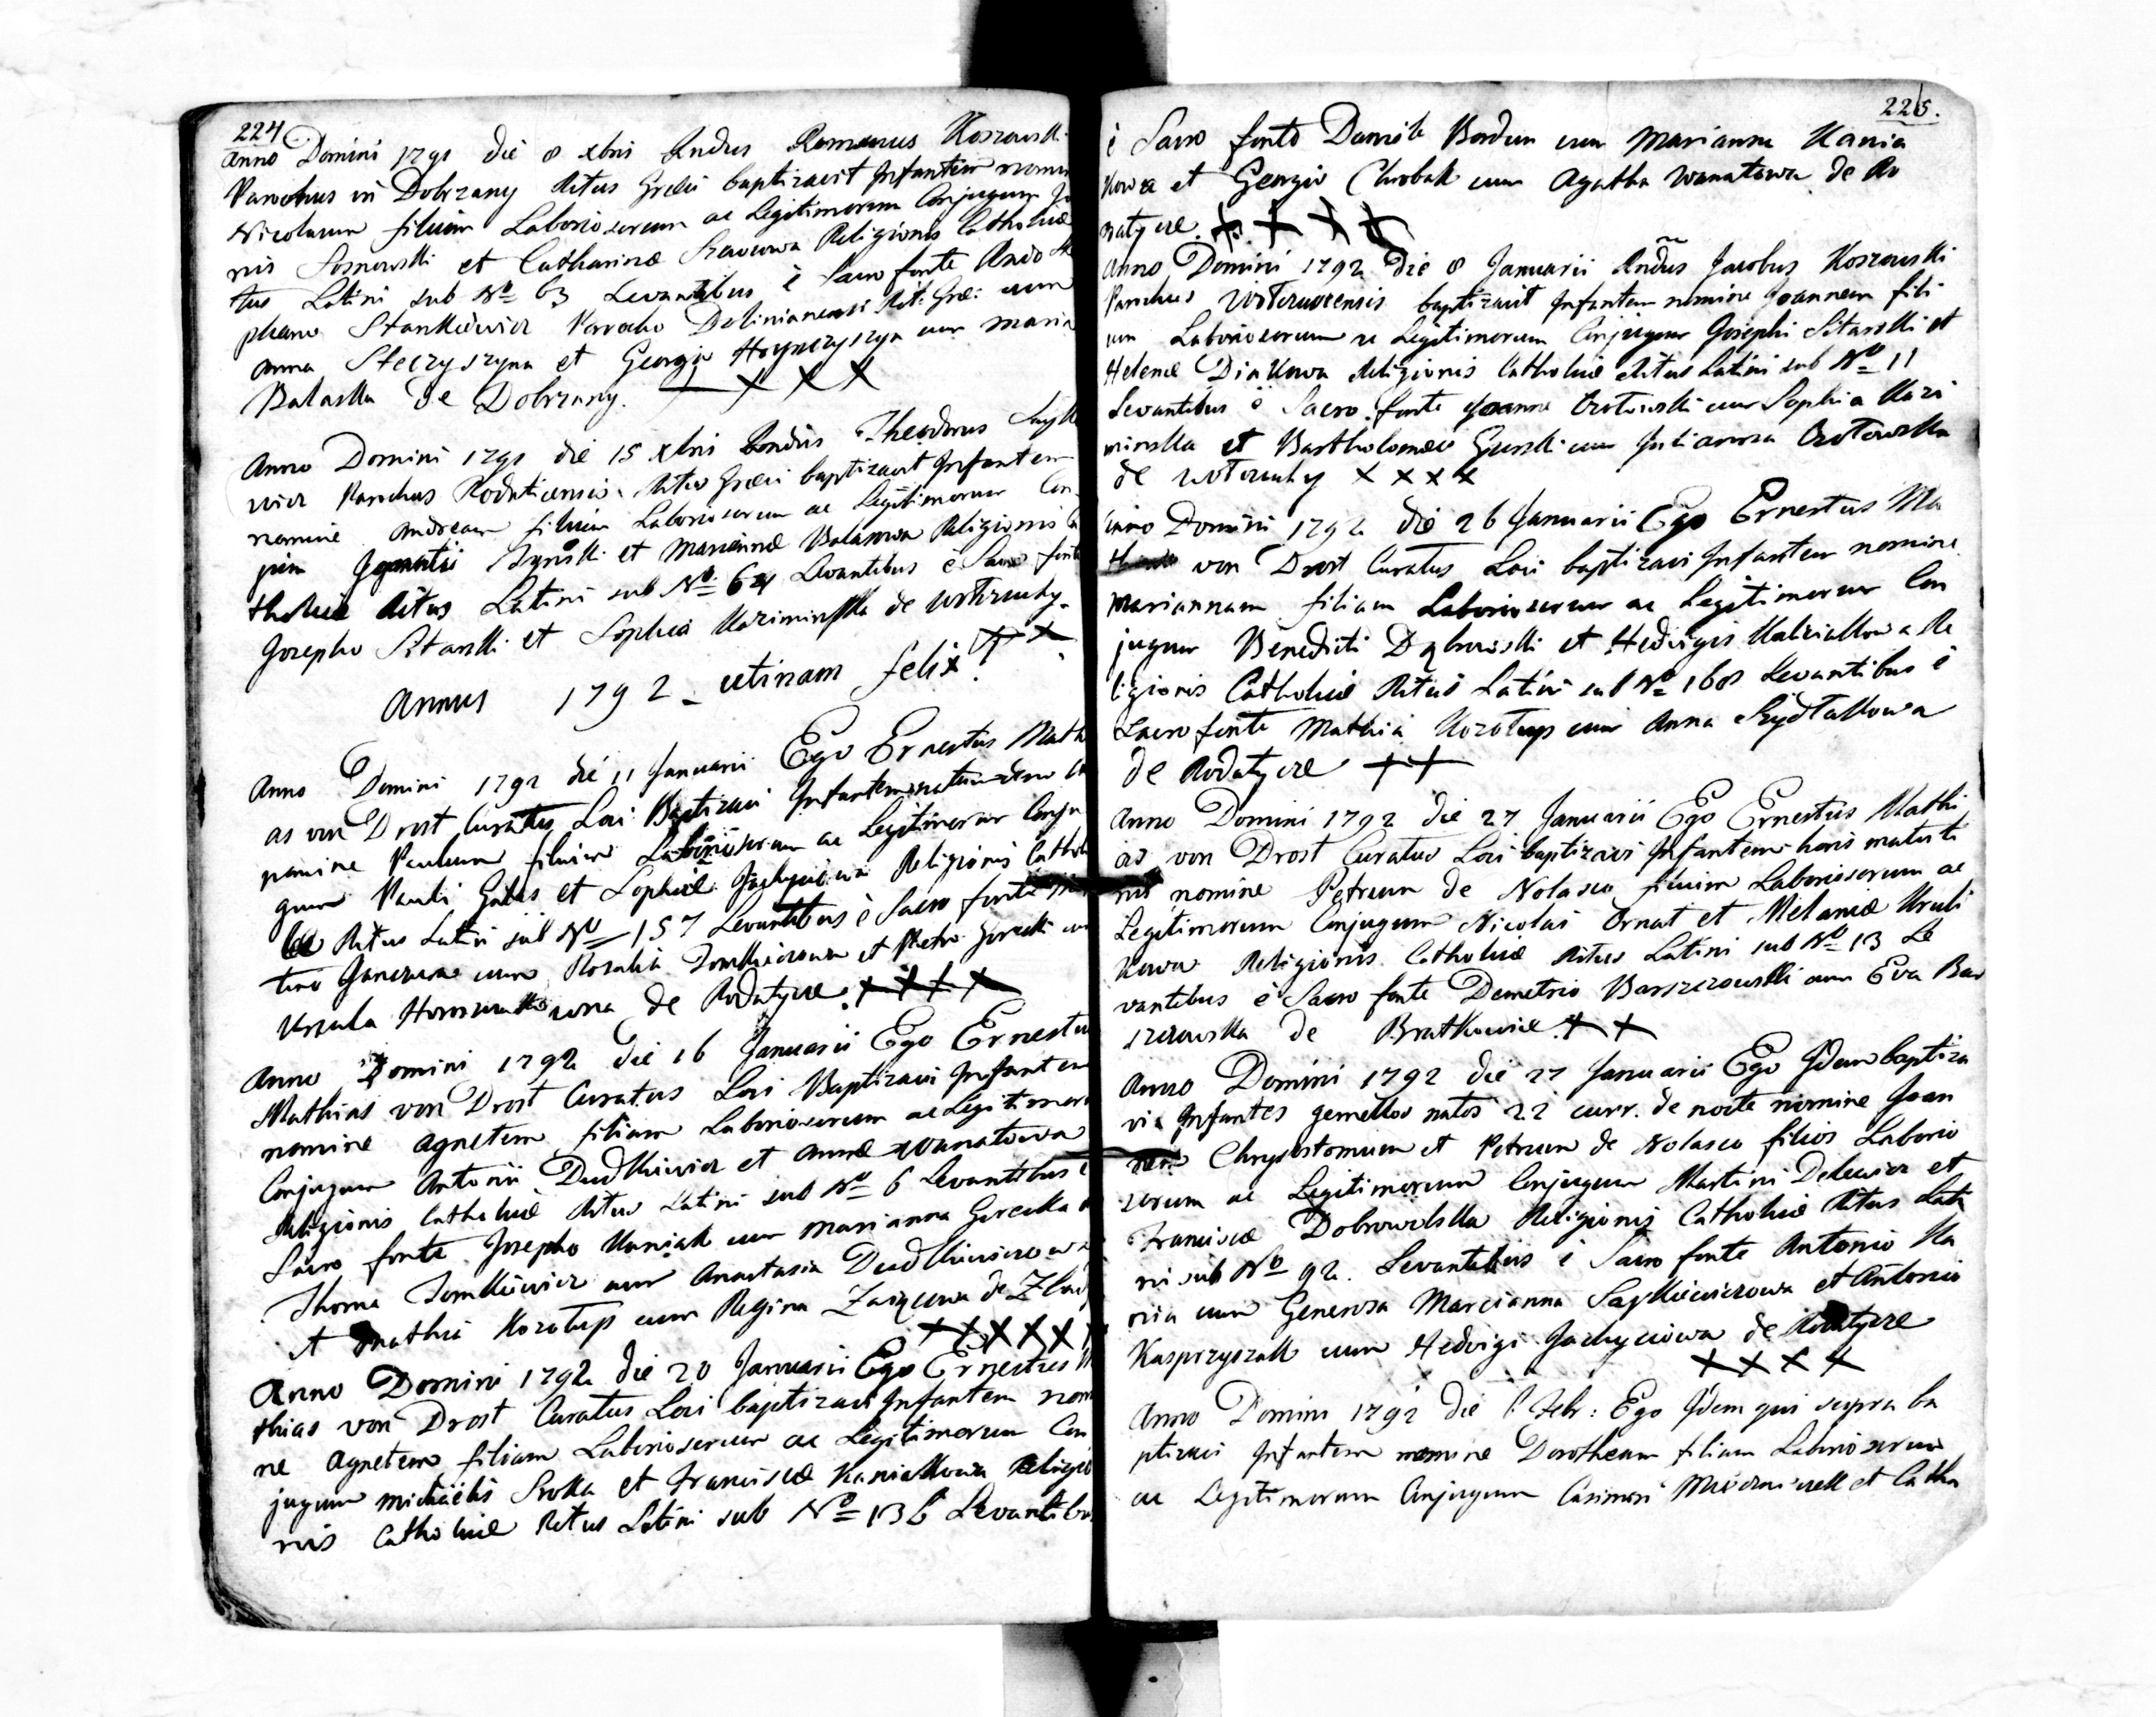 224
Anno Domini 1791 die 8 xbris Rndus Romanus Koszowski
Parochus in Dobrzany Ritus Græci baptizavit Infantem nomi
Nicolaum filium Laboriosorum ac Legitimorum Conjugum Jo
nis Sosnowski et Catharinæ Religionis Catholicæ
tus Latini sub No 63 Levantibus è Sacro fonte Rndo Ste
phano Stankiewicz Parocho Rit: Græ: cum
Anna Steczyszyna et Georgio cum Maria
Balaska de Dobrzany. X X X
Anno Domini 1791 die 15 xbris Rndus Theodorus
wicz Parochus Rodaticensis Ritus Græci baptizavit Infantem
nomine Andream filium Laboriosorum ac Legitimorum Con
jum Ignatii et Mariannæ Balasowa Religionis Ca
tholicæ Ritus Latini sub No 64 Levantibus è Sacro fonte
Josepho Sitarski et Sophia Kaziminska de Wotczuchy.
Annus 1792 - utinam felix!
Anno Domini 1792 die 11 Januarii Ego Ernestus Math
as von Drost Curatus Loci Baptizavi Infantem
nomine Paulum filium Laboriosorum ac Legitimorum Conju
gum Pauli et Sophiæ Jachyciowa Religionis Cathol
cæ Ritus Latini sub No 157 Levantibus è Sacro fonte
cum Rosalia Tomkiewiczowa et Petro Gorecki
Urszula de Rodatycze. X X X X
Anno Domini 1792 die 16 Januarii Ego Ernestus
Mathias von Drost Curatus Loci Baptizavi Infantem
nomine Agnetem filiam Laboriosorum ac Legitimor
Conjugum Antonii Dudkiewicz et Annæ Wanatowa
Religionis Catholicæ Ritus Latini sub No 6 Levantibus è
Sacro fonte Josepho Kaniak cum Marianna Gorecka
Thoma Tomkiewicz cum Anastasia Dudkiewiczowa
et Mathia Kozotup cum Regina de
X X X X X
Anno Domini 1792 die 20 Januarii Ego Ernestus Ma
thias von Drost Curatus Loci baptizavi Infantem nomi
ne Agnetem filiam Laboriosorum ac Legitimorum Con
jugum Michaëlis Sroka et Franciscæ Kaniakowa Religio
nis Catholicæ Ritus Latini sub No 136 Levantibus
225.
è Sacro fonte Daniele Bordun cum Marianna Kania
kowa et Georgio Chrobak cum Agatha Wanatowa de Ro
datycze. X X X X
Anno Domini 1792 Die 8 Januarii Rndus Jacobus Koszowski
Parochus baptizavit Infantem nomine Joannem fili
um Laboriosorum ac Legitimorum Conjugum Josephi Sitarski et
Helenæ Diakowa Religionis Catholicæ Ritus Latini sub No 11
Levantibus è Sacro fonte Joanne cum Sophia Kazi
minska et Bartholomæo Gurski cum Julianna
de Wotczuchy X X X X
Anno Domini 1792 die 26 Januarii Ego Ernestus Ma
von Drost Curatus Loci baptizavi Infantem nomine
Mariannam filiam Laboriosorum ac Legitimorum Con
jugum Benedicti Dąbrowski et Hedvigis a Re
ligionis Catholicæ Ritus Latini sub No 168 Levantibus è
Sacro fonte Mathia Kozotup cum Anna Szydtakowa
de Rodatycze X X
Anno Domini 1792 die 27 Januarii Ego Ernestus Mathi
as von Drost Curatus Loci baptizavi Infantem horis matuti
nis nomine Petrum de Nolasco filium Laboriosorum ac
Legitimorum Conjugum Nicolai Ornat et Melaniæ Kruli
kowa Religionis Catholicæ Ritus Latini sub No 13 Le
vantibus è Sacro fonte Demetrio Barszczowski cum Eva Bar
szczowska de Bratkowice. X X
Anno Domini 1792 die 27 Januarii Ego Idem baptiza
vi Infantes gemellos natos 22 curr. de nocte nomine Joan
nem Chrysostomum et Petrum de Nolasco filios Laborio
sorum ac Legitimorum Conjugum Martini et
Franciscæ Dobrowolska Religionis Catholicæ Ritus Lati
ni sub No 92. Levantibus è Sacro fonte Antonio Ka
nia cum Generosa Marcianna Saykiewiczowa et Antonio
Kasprzyszak cum Hedvigi Jachyciowa de Rodatycze
X X X X
Anno Domini 1792 die Febr: Ego Idem qui supra ba
ptizavi Infantem nomine Dorotheam filiam Laboriosorum
ac Legitimorum Conjugum Casimiri et Catha